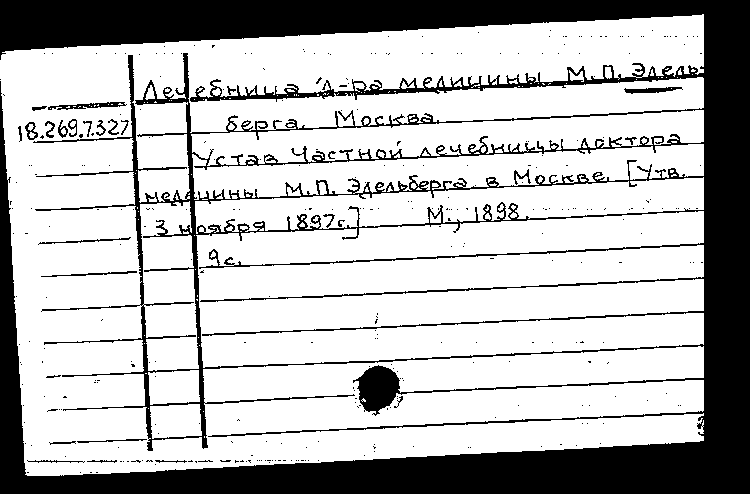 Лечебница д-ра медицины М.П. Эдель-
18.269.7.327 берга. Москва.
Устав частной лечебницы доктора
медецины М.П. Эдельберга в Москве. [Утв.
3 ноября 1897г.] М., 1898.
9с.